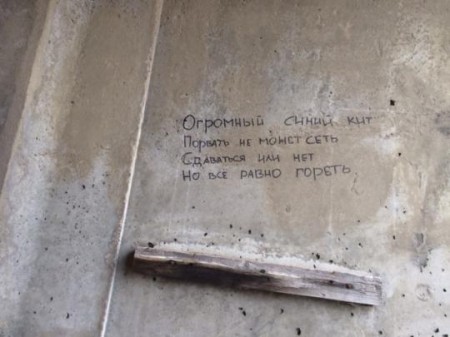 Огромный синий кит
Порвать не может сеть
Сдаваться или нет
Но все равно гореть